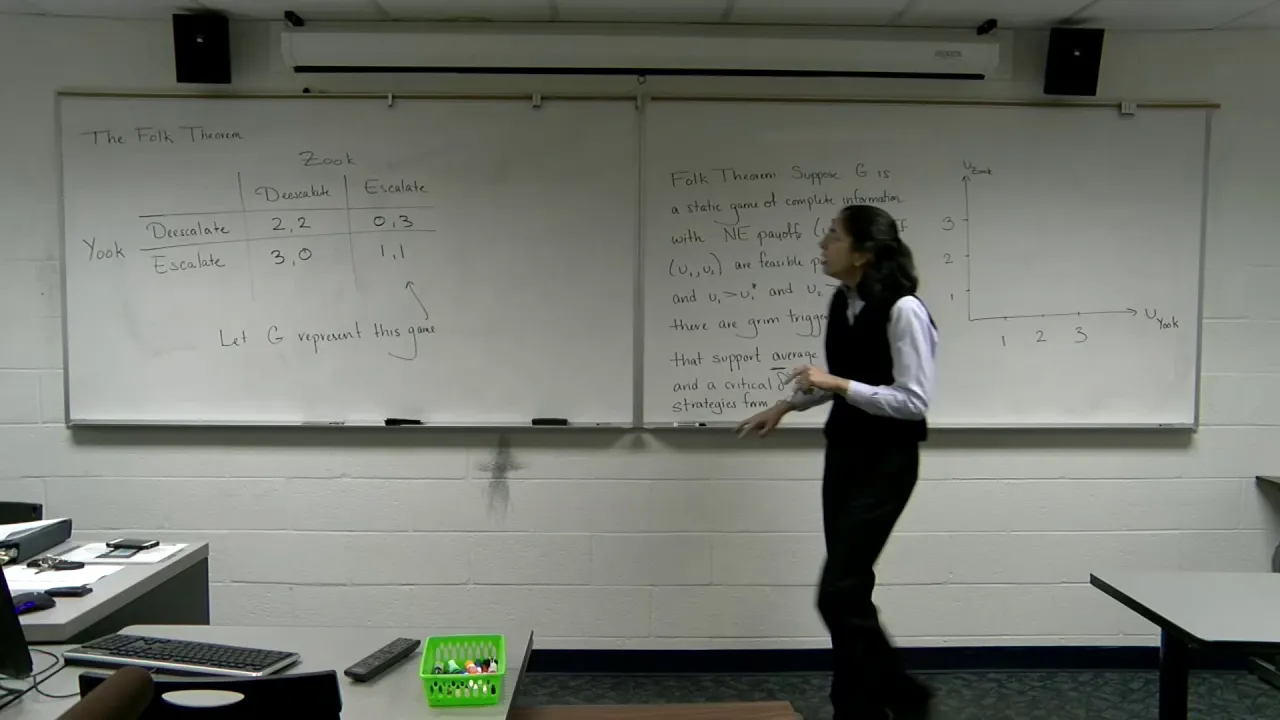 The Folk Theorem
Zook
Deescalate Escalate
Deescalate 2,2 0,3
Yook
Escalate 3,0 1,1
Let G represent this game
Folk Theorem: Suppose G is
a static game of complete information
with NE payoff (
(u₁,u₂) are feasible
and u₁>u₁* and u₂
there are grim trigger
that support average
and a critical
strategies form
U Zook
3
2
1
1 2 3
U Yook